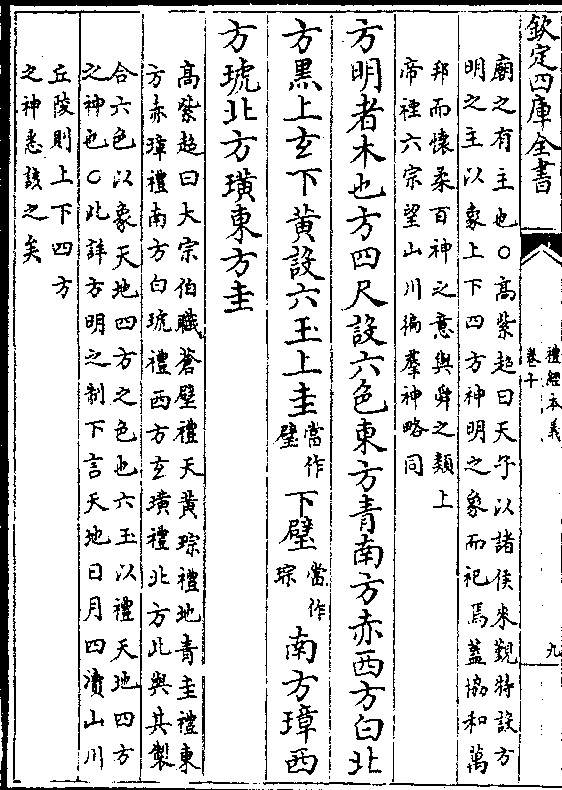 欽定四庫全書
禮經本義
卷十
九
廟之有主也○高紫超曰天子以諸侯來覲特設方
明之主以象上下四方神明之象而祀焉蓋協和萬
邦而懷柔百神之意與舜之類上
帝禋六宗望山川徧羣神略同
方明者木也方四尺設六色東方青南方赤西方白北
方黑上玄下黃設六玉上圭當作璧下璧當作琮南方璋西
方琥北方璜東方圭
高紫超曰大宗伯職蒼璧禮天黃琮禮地青圭禮東
方赤璋禮南方白琥禮西方玄璜禮北方此與其製
合六色以象天地四方之色也六玉以禮天地四方
之神也○此詳方明之制下言天地日月四瀆山川
丘陵則上下四方
之神悉該之矣